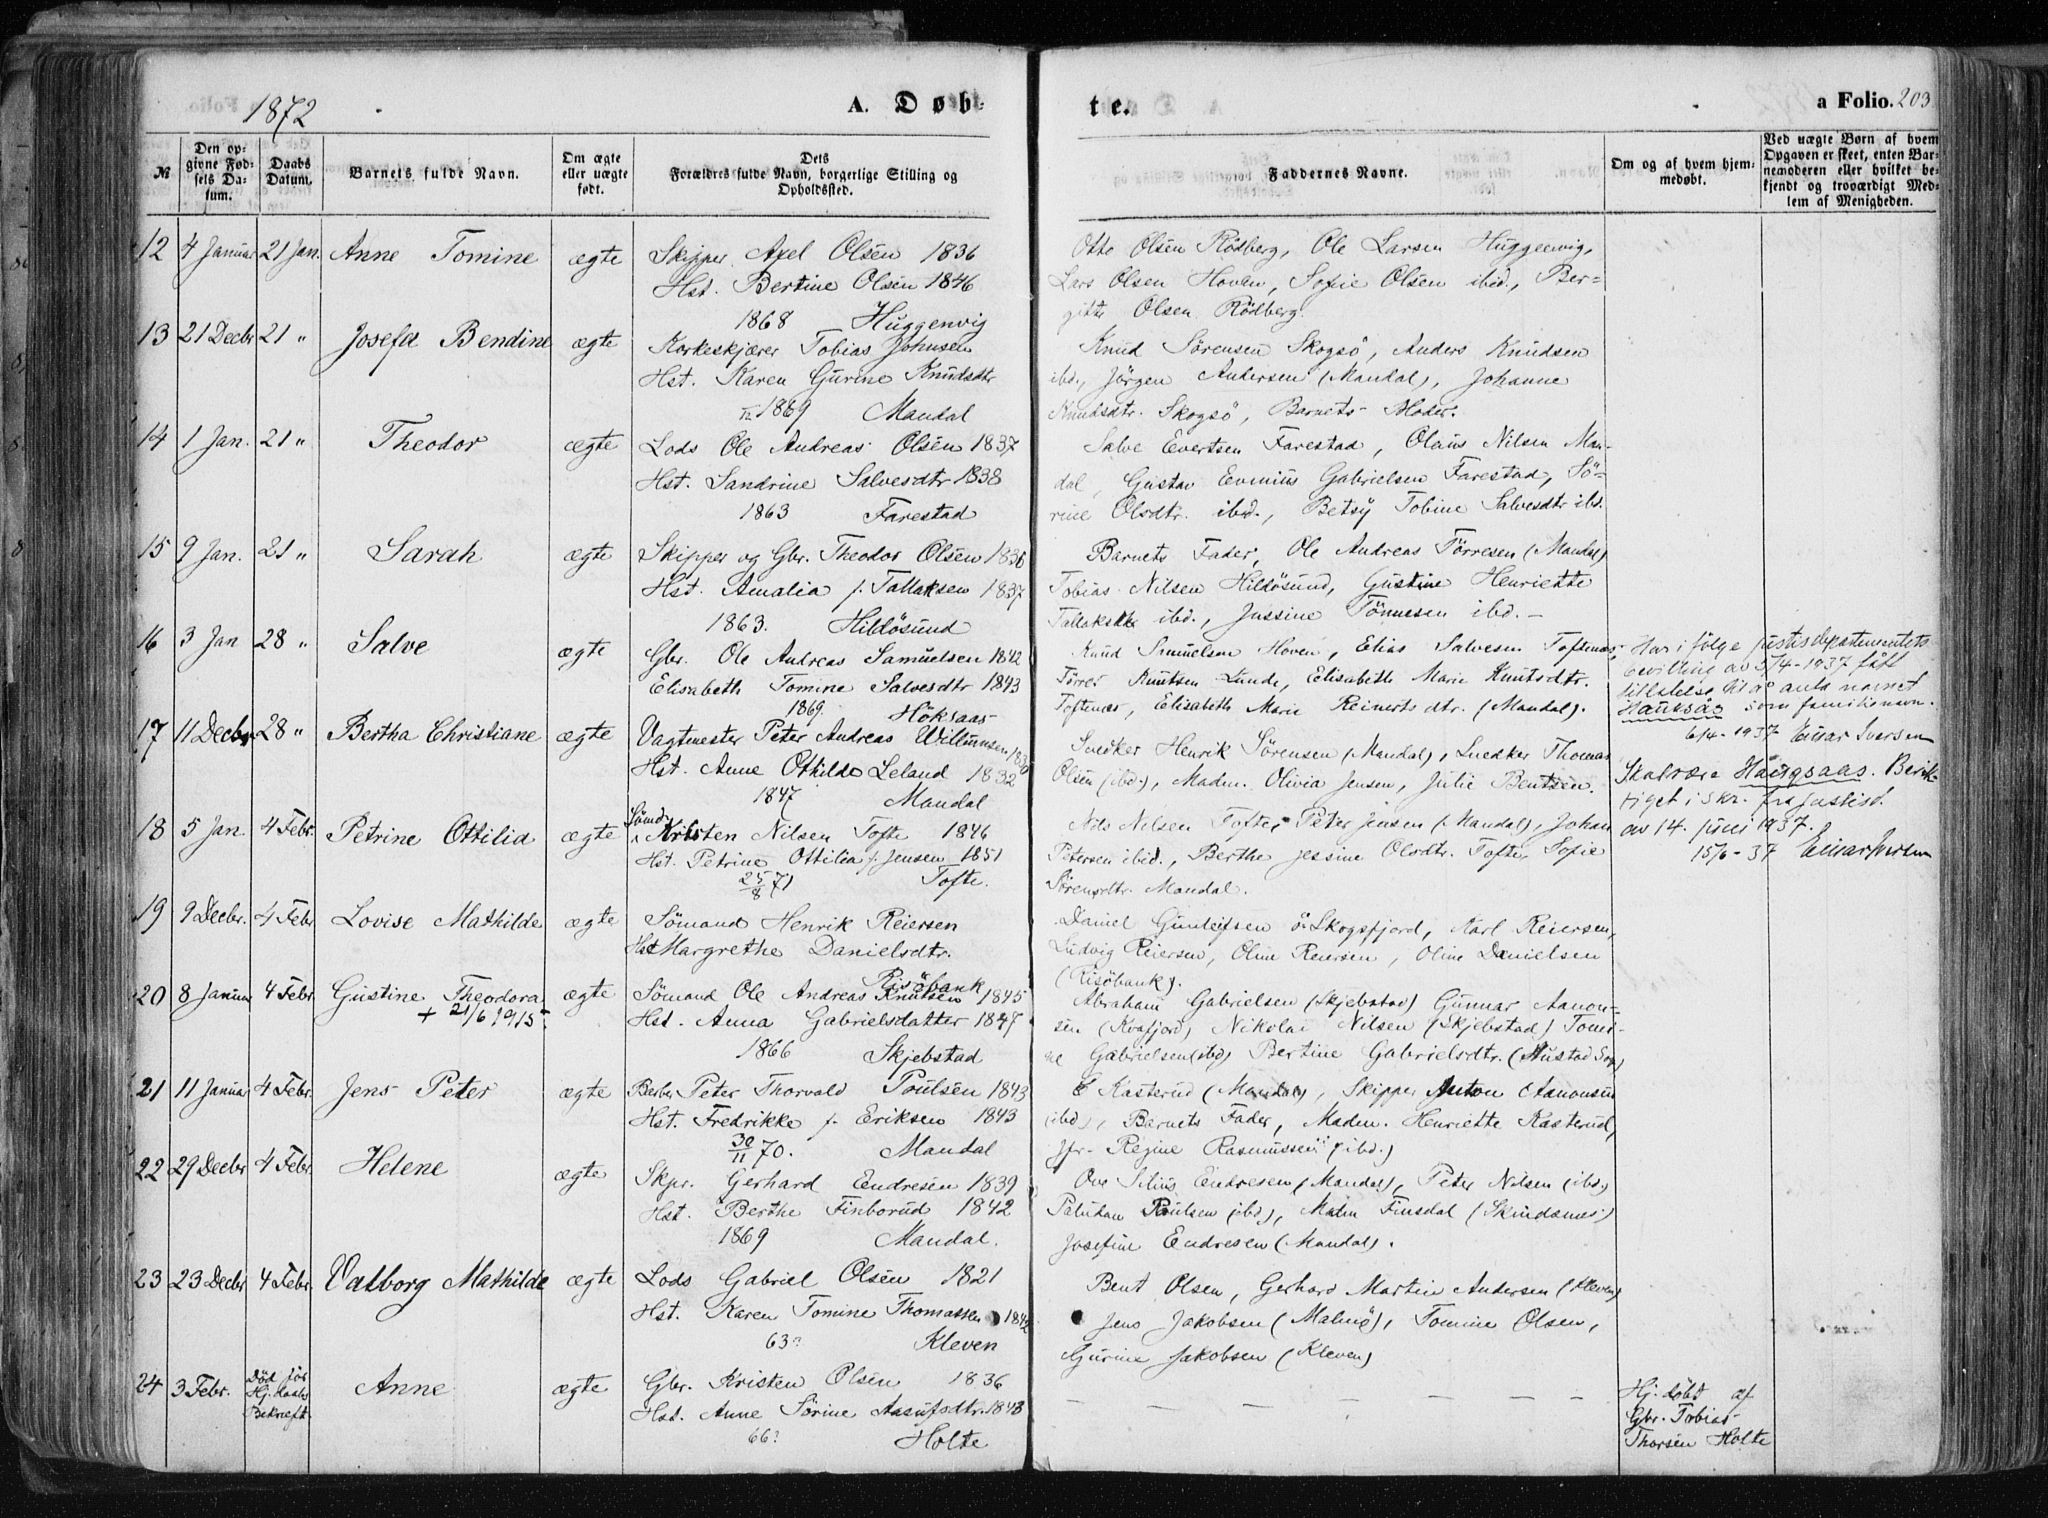 1872
A. Døb-
te.
a Folio. 203
№
Den op-
givne Fød-
sels Da-
tum.
Daabs
Datum.
Barnets fulde Navn.
Om ægte
eller uægte
født.
Dets
Forældres fulde Navn, borgerlige Stilling og
Opholdssted.
Faddernes Navne.
Om og af hvem hjem-
medøbt.
Ved uægte Børn af hvem
Opgaven er skeet, enten Bar-
nemoderen eller hvilket be-
kjendt og troværdigt Med-
lem af Menigheden.
12 4 Januar 21 Jan. Anne Tomine ægte Skipper Axel Olsen 1836
Hst. Bertine Olsen 1846
1868 Huggenvig
Otto Olsen Rödberg, Ole Larsen Huggenvig,
Lars Olsen Hoven, Sofie Olsen ibid., Ber-
gitte Olsen Rödberg.
13 21 Decbr 21 " Josefa Bendine ægte Korkeskjærer Tobias Johnsen
Hst. Karen Gurine Knudsdtr
1869 Mandal
Knud Sörensen Skogsö, Anders Knudsen
ibd., Jörgen Andersen (Mandal), Johanne
Knudsdtr. Skogsö, Barnets Moder.
14 1 Jan. 21 " Theodor ægte Lods Ole Andreas Olsen 1837
Hst. Sandrine Salvesdtr 1838
1863 Farestad
Salve Evertsen Farestad, Olaus Nilsen Man-
dal, Gustav Gabrielsen Farestad, Sö-
rine Olsdtr. ibid., Betsy Tobine Salvesdtr ibd.
15 9 Jan. 21 " Sarah ægte Skipper og Gbr. Theodor Olsen 1836
Hst. Amalia f. Tallaksen 1837
1863. Hildösund
Barnets Fader, Ole Andreas Törresen (Mandal)
Tobias Nilsen Hildösund, Gustine Henriette
ibd., Jussine Tönnesen ibd. –
16 3 Jan 28 " Salve ægte Gbr. Ole Andreas Samuelsen 1842
Elisabeth Tomine Salvesdtr 1843
1869. Höksaas
Knud Smuelsen Hoven, Elias Salvesen Toftenæs,
Törres Knutsen Lunde, Elisabeth Marie Knutsdtr.
Toftenæs, Elisabeth Marie Reinertsdtr. (Mandal).
Har i følge justisdepartementets
bevilling av 5/4-1937 fått
tillatelse til å anta navnet
Hauksås som familienavn.
6/4-1937 Einar Iversen
17 11 Decbr 28 " Bertha Christiane ægte Vagtmester Peter Andreas Willumsen 1830
Hst. Anne Othilde Leland 1832
1847 Mandal
Snedker Henrik Sörensen (Mandal), Snedker Thomas
Olsen (ibd.), Madm. Olivia Jensen, Julie Bentsen.
Skal være Haugsaas. Berik-
tiget i skr. fra justisd.
av 14. juni 1937.
15/6-37 Einar Iversen
18 5 Jan. 4 Febr. Petrine Ottilia ægte Sömd. Kristen Nilsen Tofte 1846
Hst. Petrine Ottilia f. Jensen 1851
25/8 71 Tofte.
Nils Nilsen Tofte, Peter Jensen (Mandal), Johan
Petersen ibid., Berthe Jessine Olsdtr. Tofte, Sofie
Sörensdtr. Mandal.
19 9 Decbr. 4 Febr Lovise Mathilde ægte Sömand Henrik Reiersen
Hst Margrethe Danielsdtr.
Risöbank
Daniel Gunleifsen ö. Skogsfjord, Karl Reiersen,
Ludvig Reiersen, Oline Reiersen, Oline Danielsen
(Risöbank).
20 8 Januar 4 Febr. Gustine Theodora ægte Sömand Ole Andreas Knutsen 1845
+ 21/6 1915. Hst. Anna Gabrielsdatter 1847
1866 Skjebstad
Abraham Gabrielsen (Skjebstad) Gunnar Aanon-
sen (Kvafjord), Nikolai Nilsen (Skjebstad) Tomi-
ne Gabrielsen (ibd) Bertine Gabrielsdtr.
21 11 Januar 4 Febr. Jens Peter ægte Berber Peter Thorvald Poulsen 1843
Hst. Fredrikke f. Eriksen 1843
30/11 70. Mandal
E Kasterud (Mandal), Skipper Anton Aanonsen
(ibd), Barnets Fader, Madm. Henriette Kasterud,
Jfr. Regine Rasmussen (ibd.)
22 29 Decbr 4 Febr. Helene ægte Skpr. Gerhard Endresen 1839
Hst. Berthe Finborud 1842
1869 Mandal.
Ove Endresen (Mandal), Peter Nilsen (ibd.)
Poulsen (ibd), Malin Finsdal (Skindsnes)
Josefine Endresen (Mandal).
23 23 Decbr 4 Febr. Valborg Mathilde ægte Lods Gabriel Olsen 1821
Hst. Karen Tomine Thomassen 1842
63? Kleven
Bent Olsen, Gerhard Martin Andersen (Kleven)
Jens Jakobsen (Malmö), Tomine Olsen,
Gurine Jakobsen (Kleven)
24 3 Febr. Död för
Hj. daabs
Bekræft. Anne ægte Gbr. Kristen Olsen 1836
Hst. Anne Sörine Aasufsdtr. 1843
66? Holte
Hj. döbd af
Gbr. Tobias
Thorsen Holte